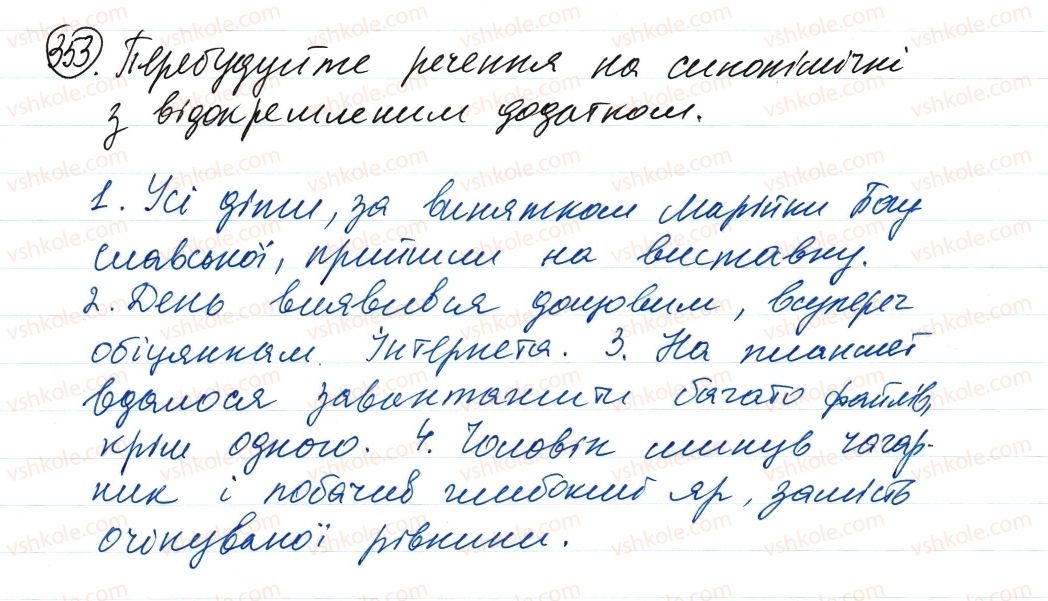 353. Перебудуйте речення на синонімічні
з відокремленим додатком.
1. Усі діти, за винятком Марійки Богу
славської, прийшли на виставку.
2. День виявився дощовим, всупереч
обіцянкам Інтернета. 3. На планшет
вдалося завантажити багато файлів,
крім одного. 4. Чоловік минув чагар-
ник і побачив глибокий яр, замість
очікуваної рівнини.